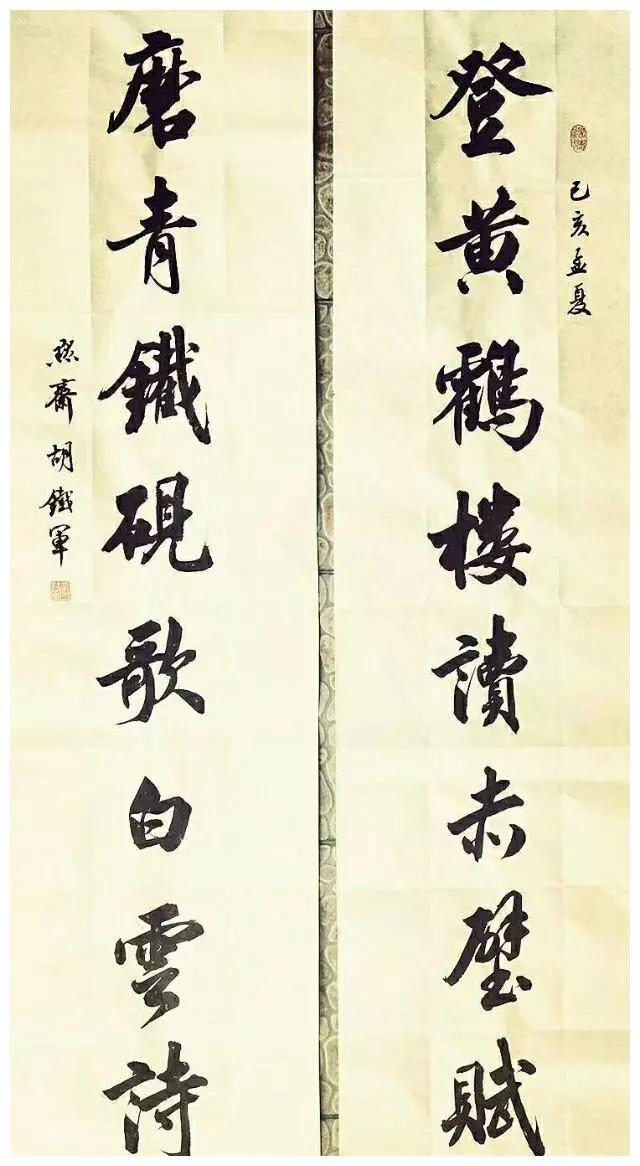 己亥孟夏
登黄鶴樓讀赤壁賦
磨青鐵硯歌白雲詩
齋胡鐵軍